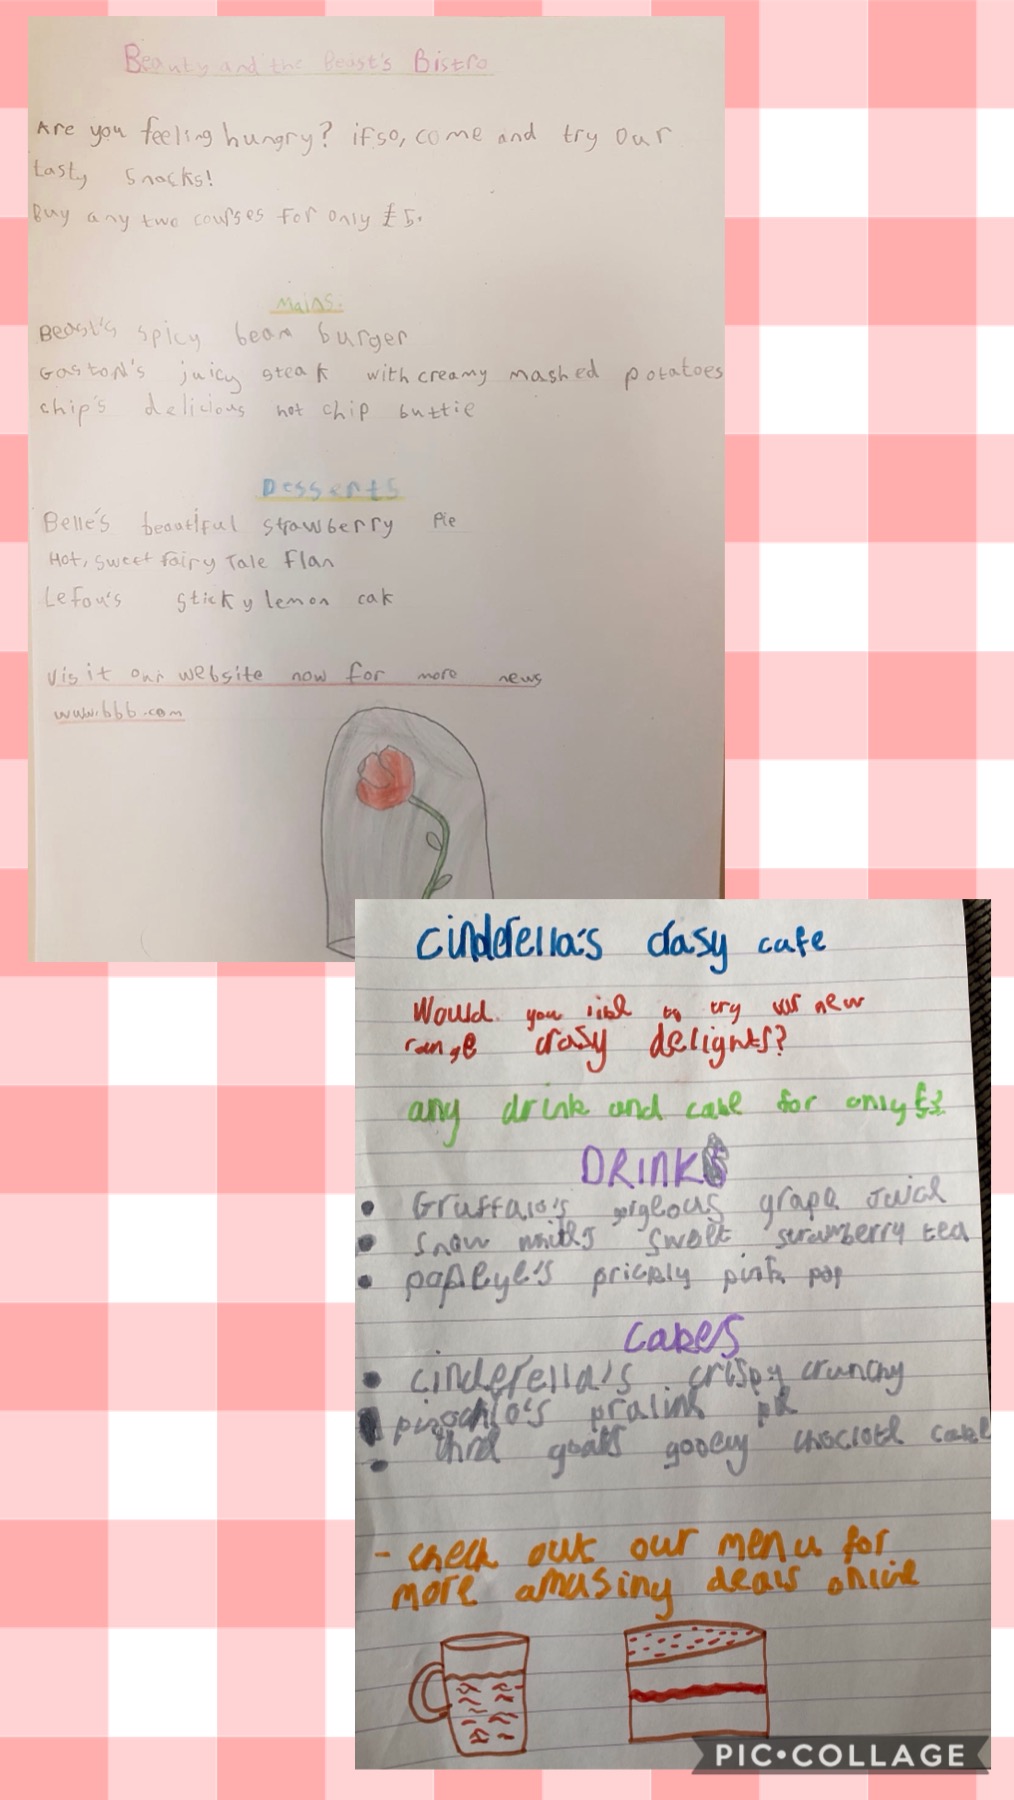 Beauty and the Beast's Bistro
Are you feeling hungry? if so, come and try our
tasty snacks!
Buy any two courses for only £5.
Mains.
Beast's spicy bean burger
Gaston's juicy steak with creamy mashed potatoes
chip's delicious hot chip buttie
Desserts
Belle's beautiful strawberry Pie
Hot, sweet fairy Tale flan
Lefou's sticky lemon cak
Visit our website now for more news
www.bbb.com
cinderella's crasy cafe
Would you like to try our new
range crasy delights?
any drink and cake for only
DRINKS
Gruffalo's gorgeous grape
Snow sweet strawberry tea
prickly pink pop
cakes
cinderella's crispy crunchy
goats gooey
- check out our menu for
more amusing deals online
PIC•COLLAGE